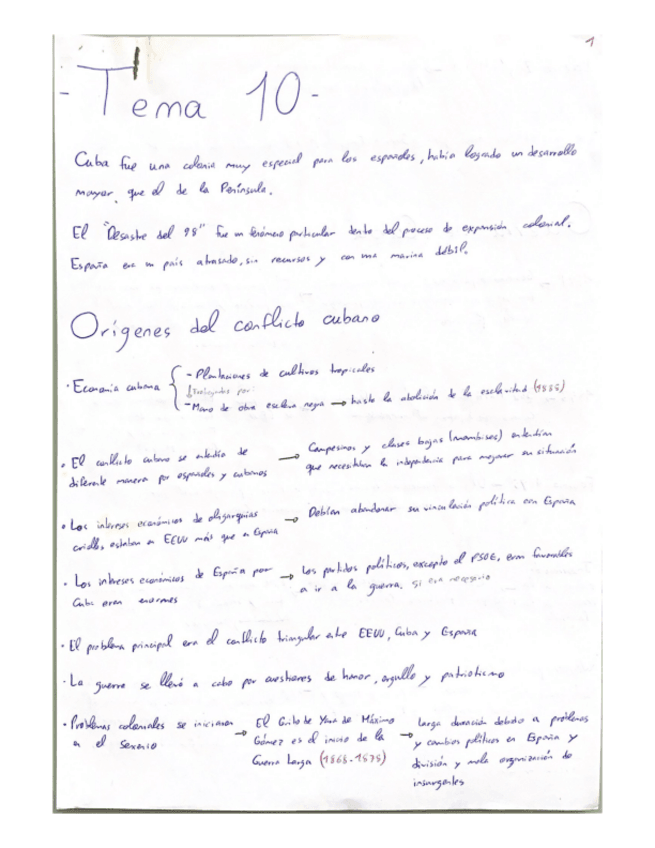 1
- Tema 10 -
Cuba fue una colonia muy especial para los españoles, había logrado un desarrollo
mayor que el de la Península.
El "Desastre del 98" fue un fenómeno particular dentro del proceso de expansión colonial.
España era un país atrasado, sin recursos y con una marina débil.
Orígenes del conflicto cubano
· Economía cubana { - Plantaciones de cultivos tropicales
↓ Trabajadas por:
- Mano de obra esclava negra → hasta la abolición de la esclavitud
· El conflicto cubano se entendió de → Campesinos y clases bajas (mambises) entendían
diferente manera por españoles y cubanos que necesitaban la independencia para mejorar su situación
· Los intereses económicos de oligarquías → Debían abandonar su vinculación política con España
criollas, estaban en EEUU más que a España
· Los intereses económicos de España por → Los partidos políticos, excepto el PSOE, eran favorables
Cuba eran enormes a ir a la guerra. Si era necesario
· El problema principal era el conflicto triangular entre EEUU, Cuba y España
· La guerra se llevó a cabo por cuestiones de honor, orgullo y patriotismo
· Problemas coloniales se iniciaron → El Grito de Yara de Máximo → Larga duración debido a problemas
en el Sexenio Gómez es el inicio de la y cambios políticos en España y
Guerra Larga (1868-1878) división y mala organización de
insurgentes